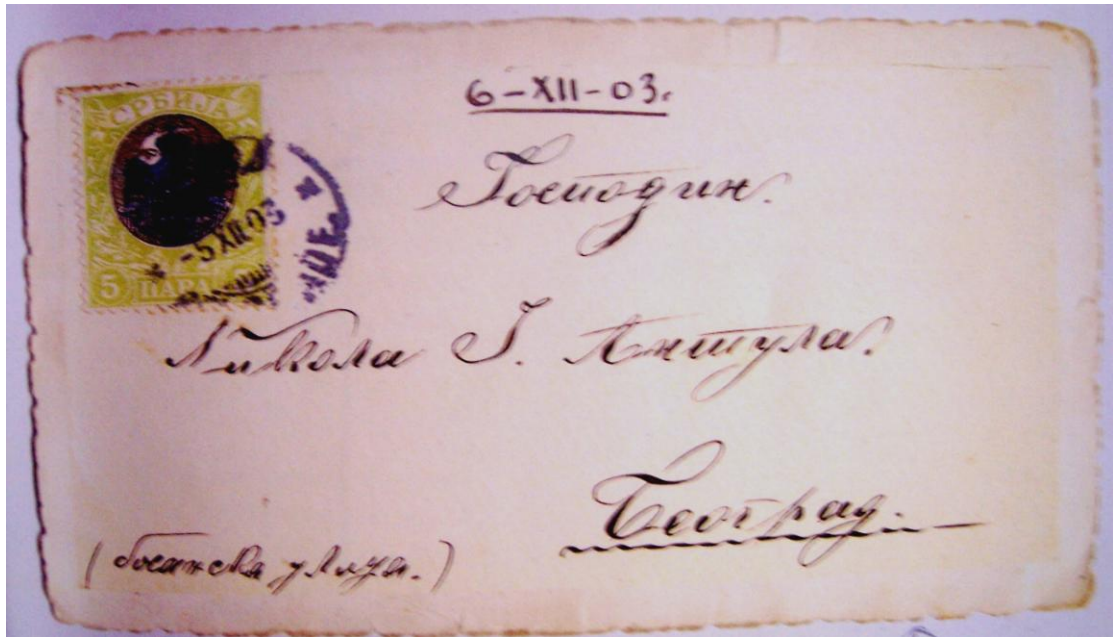 СРБИЈА
5 ПАРА
-5 XII 03
6-XII-03.
Господин.
Никола I. Антула.
Београд.
(босанска улица.)